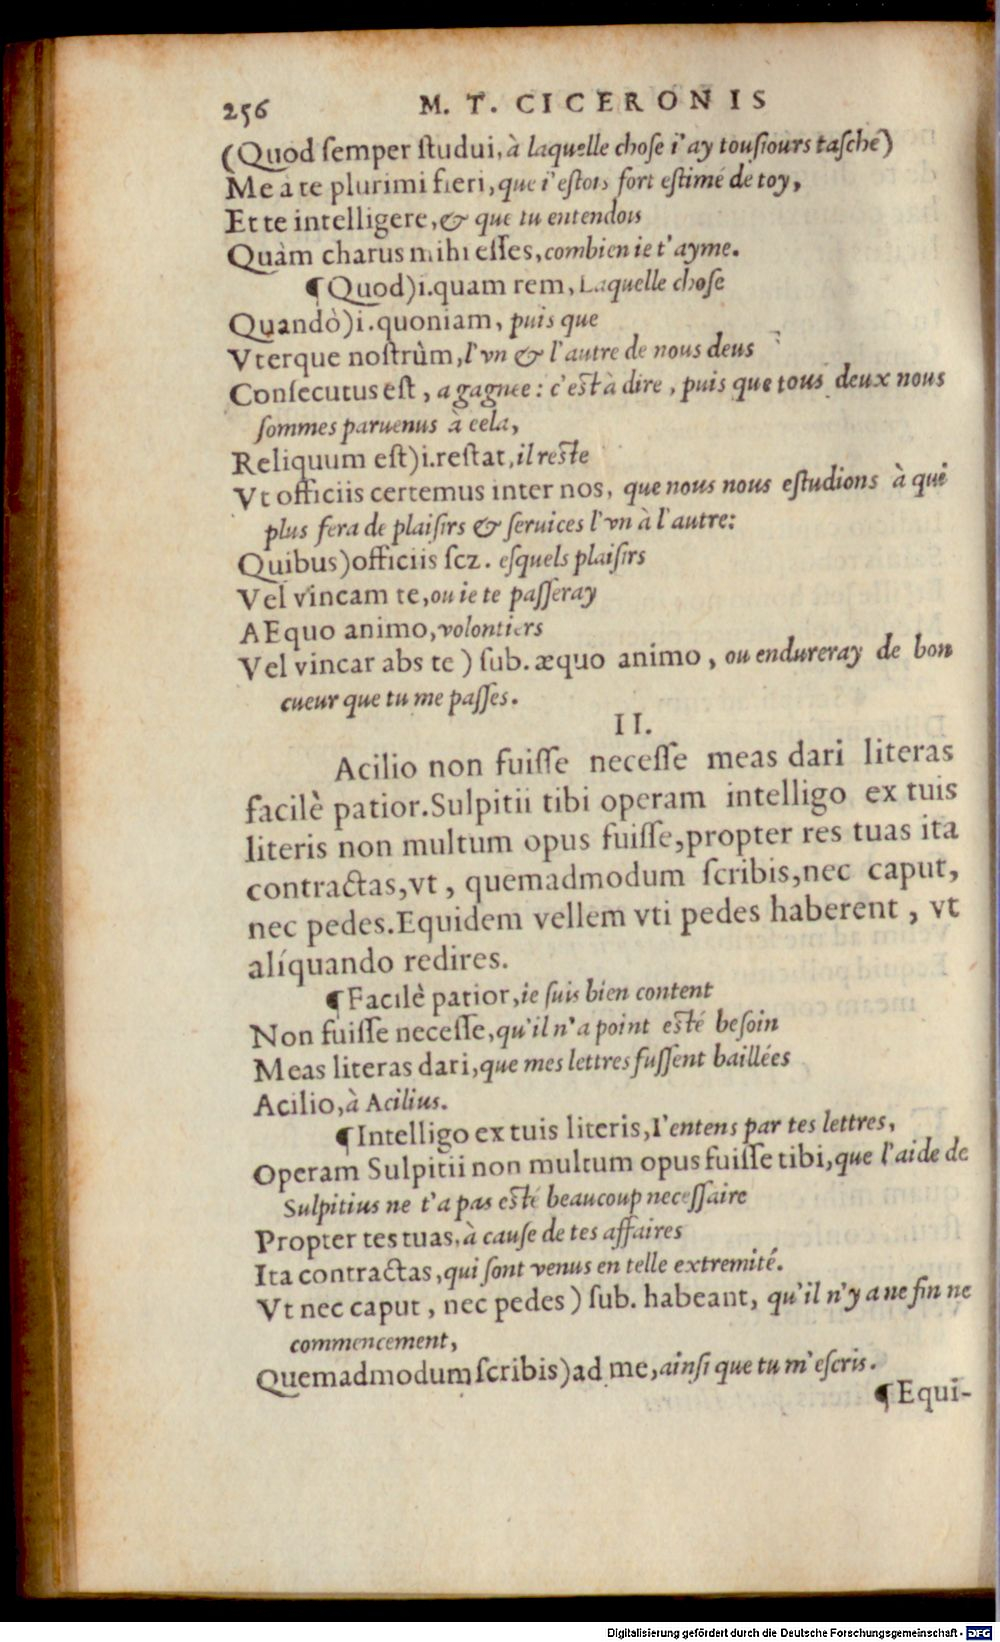 256 M. T. CICERONIS
(Quod ſemper ſtudui, à laquelle choſe i'ay touſiours taſché)
Me à te plurimi fieri, que i'eſtois fort eſtimé de toy,
Et te intelligere, & que tu entendois
Quàm charus mihi eſſes, combien ie t'ayme.
¶Quod)i.quam rem, Laquelle choſe
Quandò)i.quoniam, puis que
Vterque noſtrûm, l'vn & l'autre de nous deus
Conſecutus eſt, a gagnee: c'eſt à dire, puis que tous deux nous
ſommes paruenus à cela,
Reliquum eſt)i.reſtat, il reſte
Vt officiis certemus inter nos, que nous nous eſtudions à qui
plus fera de plaiſirs & ſeruices l'vn à l'autre:
Quibus)officiis ſcz. eſquels plaiſirs
Vel vincam te, ou ie te paſſeray
AEquo animo, volontiers
Vel vincar abs te) ſub. æquo animo, ou endureray de bon
cueur que tu me paſſes.
II.
Acilio non fuiſſe neceſſe meas dari literas
facilè patior.Sulpitii tibi operam intelligo ex tuis
literis non multum opus fuiſſe,propter res tuas ita
contractas,vt, quemadmodum ſcribis,nec caput,
nec pedes.Equidem vellem vti pedes haberent, vt
alíquando redires.
¶Facilè patior, ie ſuis bien content
Non fuiſſe neceſſe, qu'il n'a point eſté beſoin
Meas literas dari, que mes lettres fuſſent baillées
Acilio, à Acilius.
¶Intelligo ex tuis literis, I'entens par tes lettres,
Operam Sulpitii non multum opus fuiſſe tibi, que l'aide de
Sulpitius ne t'a pas eſté beaucoup neceſſaire
Propter tes tuas, à cauſe de tes affaires
Ita contractas, qui ſont venus en telle extremité.
Vt nec caput, nec pedes) ſub. habeant, qu'il n'y a ne fin ne
commencement,
Quemadmodum ſcribis)ad me, ainſi que tu m'eſcris.
¶Equi-
Digitalisierung gefördert durch die Deutsche Forschungsgemeinschaft - DFG